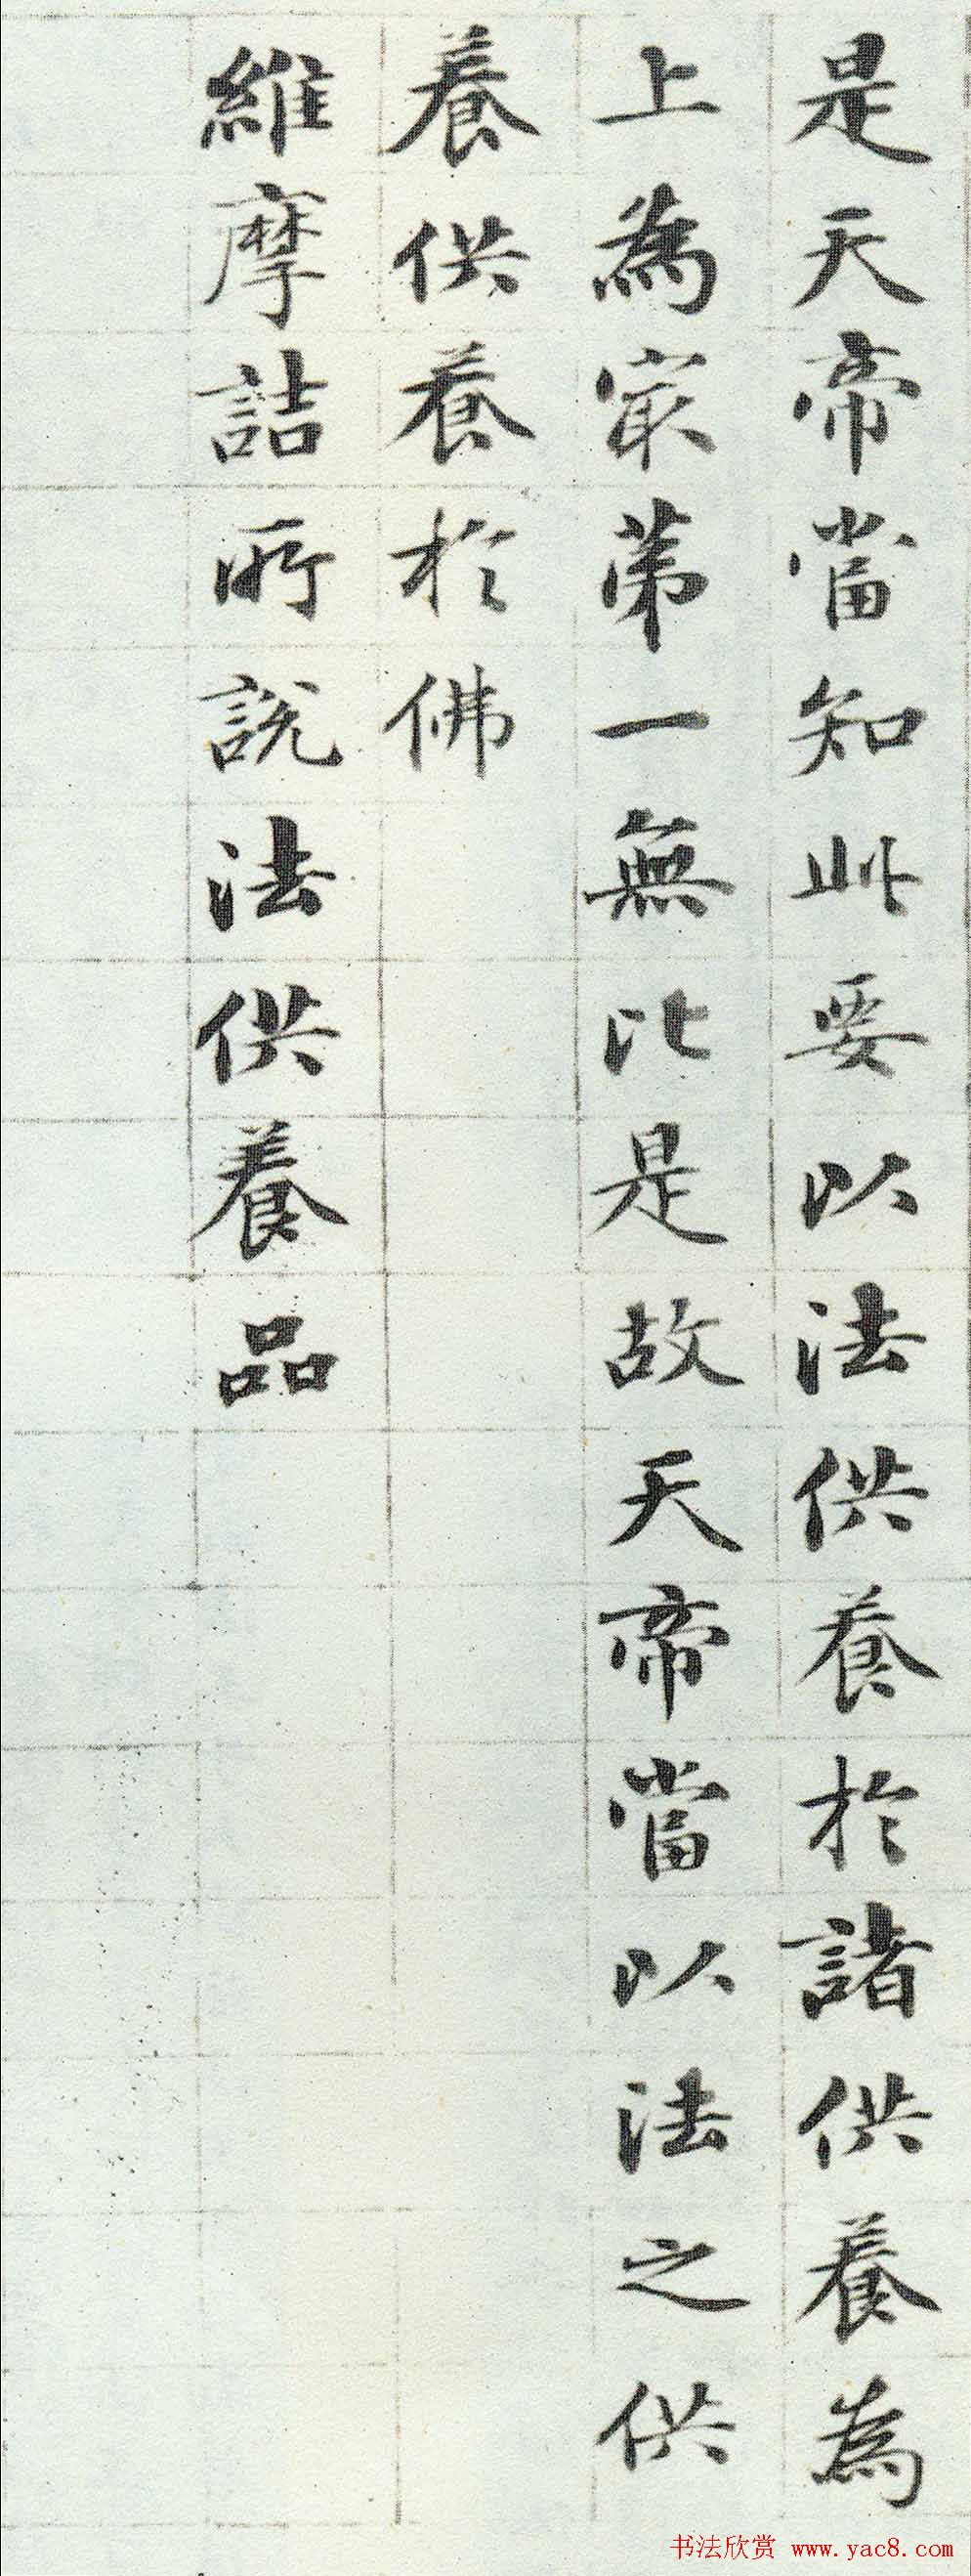 是天帝當知此要以法供養於諸供養為
上為冣苐一無比是故天帝當以法之供
養供養於佛
維摩詰所說法供養品
书法欣赏 www.yac8.com